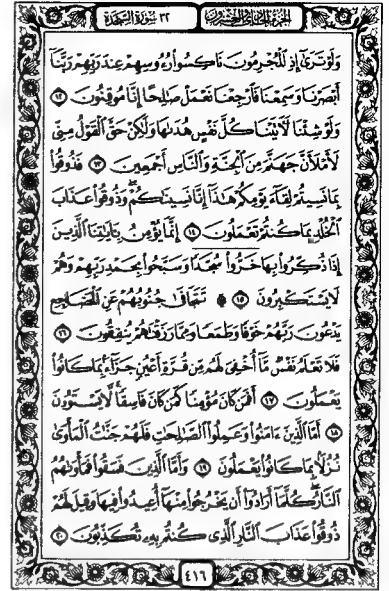 الجزء الحادي والعشرون ٣٢ سورة السجدة
وَلَوْ تَرَىٰٓ إِذِ ٱلْمُجْرِمُونَ نَاكِسُوا۟ رُءُوسِهِمْ عِندَ رَبِّهِمْ رَبَّنَآ
أَبْصَرْنَا وَسَمِعْنَا فَٱرْجِعْنَا نَعْمَلْ صَٰلِحًا إِنَّا مُوقِنُونَ ١٢
وَلَوْ شِئْنَا لَءَاتَيْنَا كُلَّ نَفْسٍ هُدَىٰهَا وَلَٰكِنْ حَقَّ ٱلْقَوْلُ مِنِّى
لَأَمْلَأَنَّ جَهَنَّمَ مِنَ ٱلْجِنَّةِ وَٱلنَّاسِ أَجْمَعِينَ ١٣ فَذُوقُوا۟
بِمَا نَسِيتُمْ لِقَآءَ يَوْمِكُمْ هَٰذَآ إِنَّا نَسِينَٰكُمْ ۖ وَذُوقُوا۟ عَذَابَ
ٱلْخُلْدِ بِمَا كُنتُمْ تَعْمَلُونَ ١٤ إِنَّمَا يُؤْمِنُ بِـَٔايَٰتِنَا ٱلَّذِينَ
إِذَا ذُكِّرُوا۟ بِهَا خَرُّوا۟ سُجَّدًا وَسَبَّحُوا۟ بِحَمْدِ رَبِّهِمْ وَهُمْ
لَا يَسْتَكْبِرُونَ ۩ ١٥ تَتَجَافَىٰ جُنُوبُهُمْ عَنِ ٱلْمَضَاجِعِ
يَدْعُونَ رَبَّهُمْ خَوْفًا وَطَمَعًا وَمِمَّا رَزَقْنَٰهُمْ يُنفِقُونَ ١٦
فَلَا تَعْلَمُ نَفْسٌ مَّآ أُخْفِىَ لَهُم مِّن قُرَّةِ أَعْيُنٍ جَزَآءًۢ بِمَا كَانُوا۟
يَعْمَلُونَ ١٧ أَفَمَن كَانَ مُؤْمِنًا كَمَن كَانَ فَاسِقًا ۚ لَّا يَسْتَوُۥنَ
١٨ أَمَّا ٱلَّذِينَ ءَامَنُوا۟ وَعَمِلُوا۟ ٱلصَّٰلِحَٰتِ فَلَهُمْ جَنَّٰتُ ٱلْمَأْوَىٰ
نُزُلًۢا بِمَا كَانُوا۟ يَعْمَلُونَ ١٩ وَأَمَّا ٱلَّذِينَ فَسَقُوا۟ فَمَأْوَىٰهُمُ
ٱلنَّارُ ۖ كُلَّمَآ أَرَادُوٓا۟ أَن يَخْرُجُوا۟ مِنْهَآ أُعِيدُوا۟ فِيهَا وَقِيلَ لَهُمْ
ذُوقُوا۟ عَذَابَ ٱلنَّارِ ٱلَّذِى كُنتُم بِهِۦ تُكَذِّبُونَ ٢٠
٤١٦